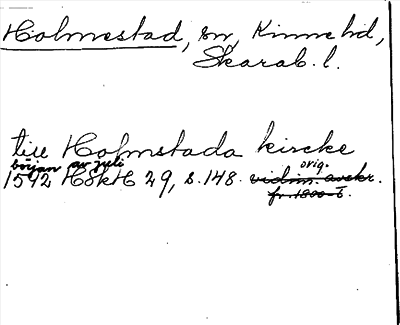 Holmestad, sn, Kinne hd,
Skarab. l.
till Holmstada kircke
början av juli orig.
1542 HSkH 29, s. 148. vidim. avskr.
fr. 1800-t.